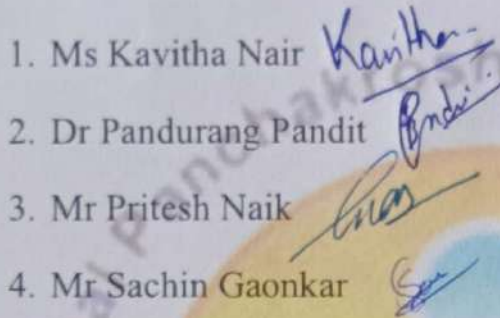 1. Ms Kavitha Nair Kavitha
2. Dr Pandurang Pandit
3. Mr Pritesh Naik
4. Mr Sachin Gaonkar